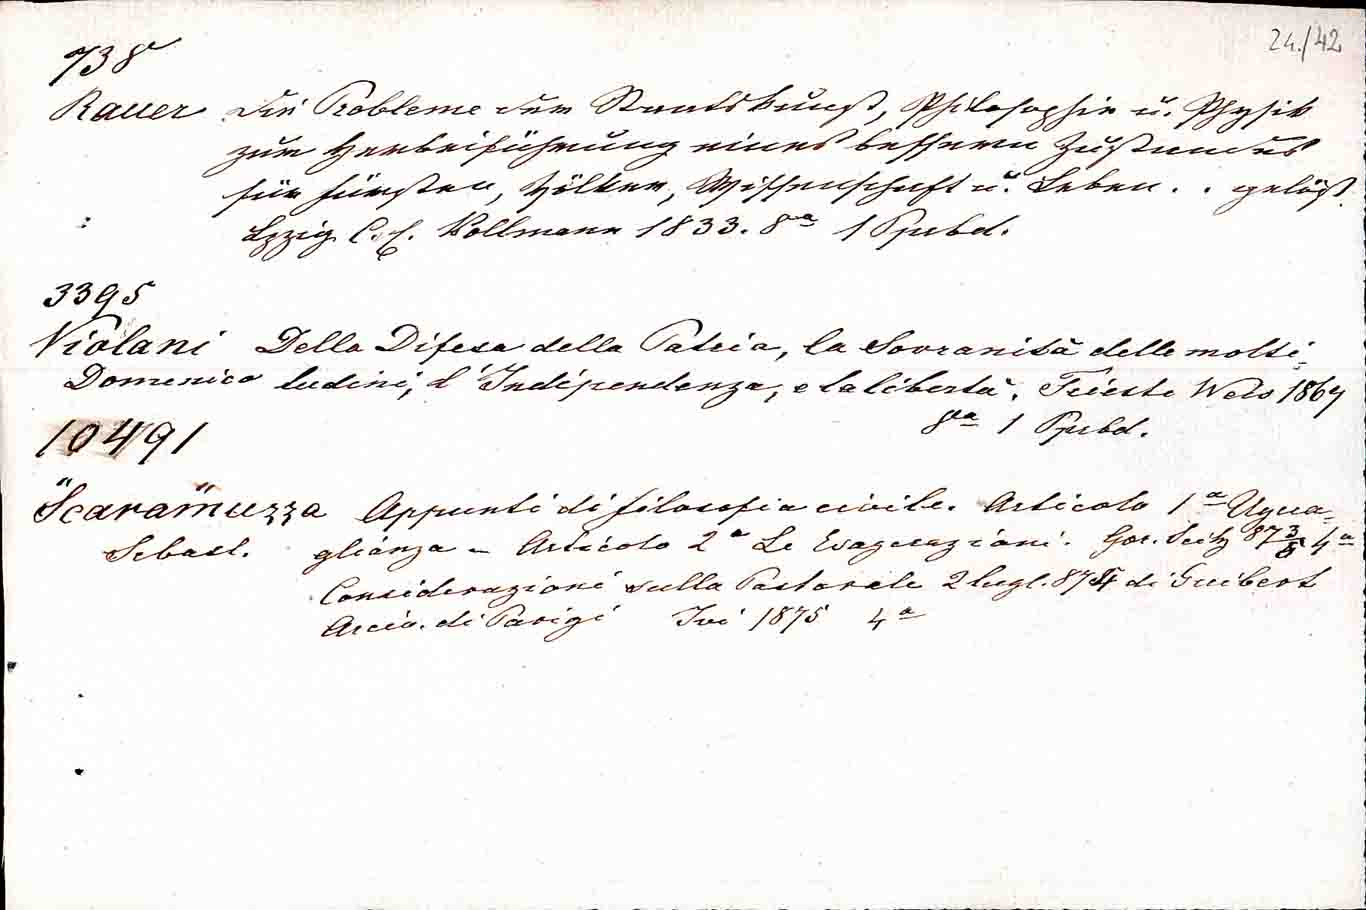 24./42
738
Rauer Die Probleme der Staatskunst, Philosophie u. Physik
zur Herbeiführung eines bessern Zustandes
für Fürsten, Völker, Wissenschaft u. Leben . . gelöst.
Lpzig C. C. Kollmann 1833. 8va 1 Ppbd.
3395
Violani Della Difesa della Patria, la Sovranità delle molti-
Domenico tudini, l'Indipendenza, e la libertà. Trieste Weis 1869
8va 1 Ppbd.
10491
Scaramuzza Appunti di filosofia civile. Articolo 1a Ugua-
Sebast. glianza – Articolo 2a Le Esagerazioni. Gor. Seitz 873/5 4a
Considerazioni sulla Pastorale 2 lugl. 874 di Guibert
Arciv. di Parigi Ivi 1875 4a